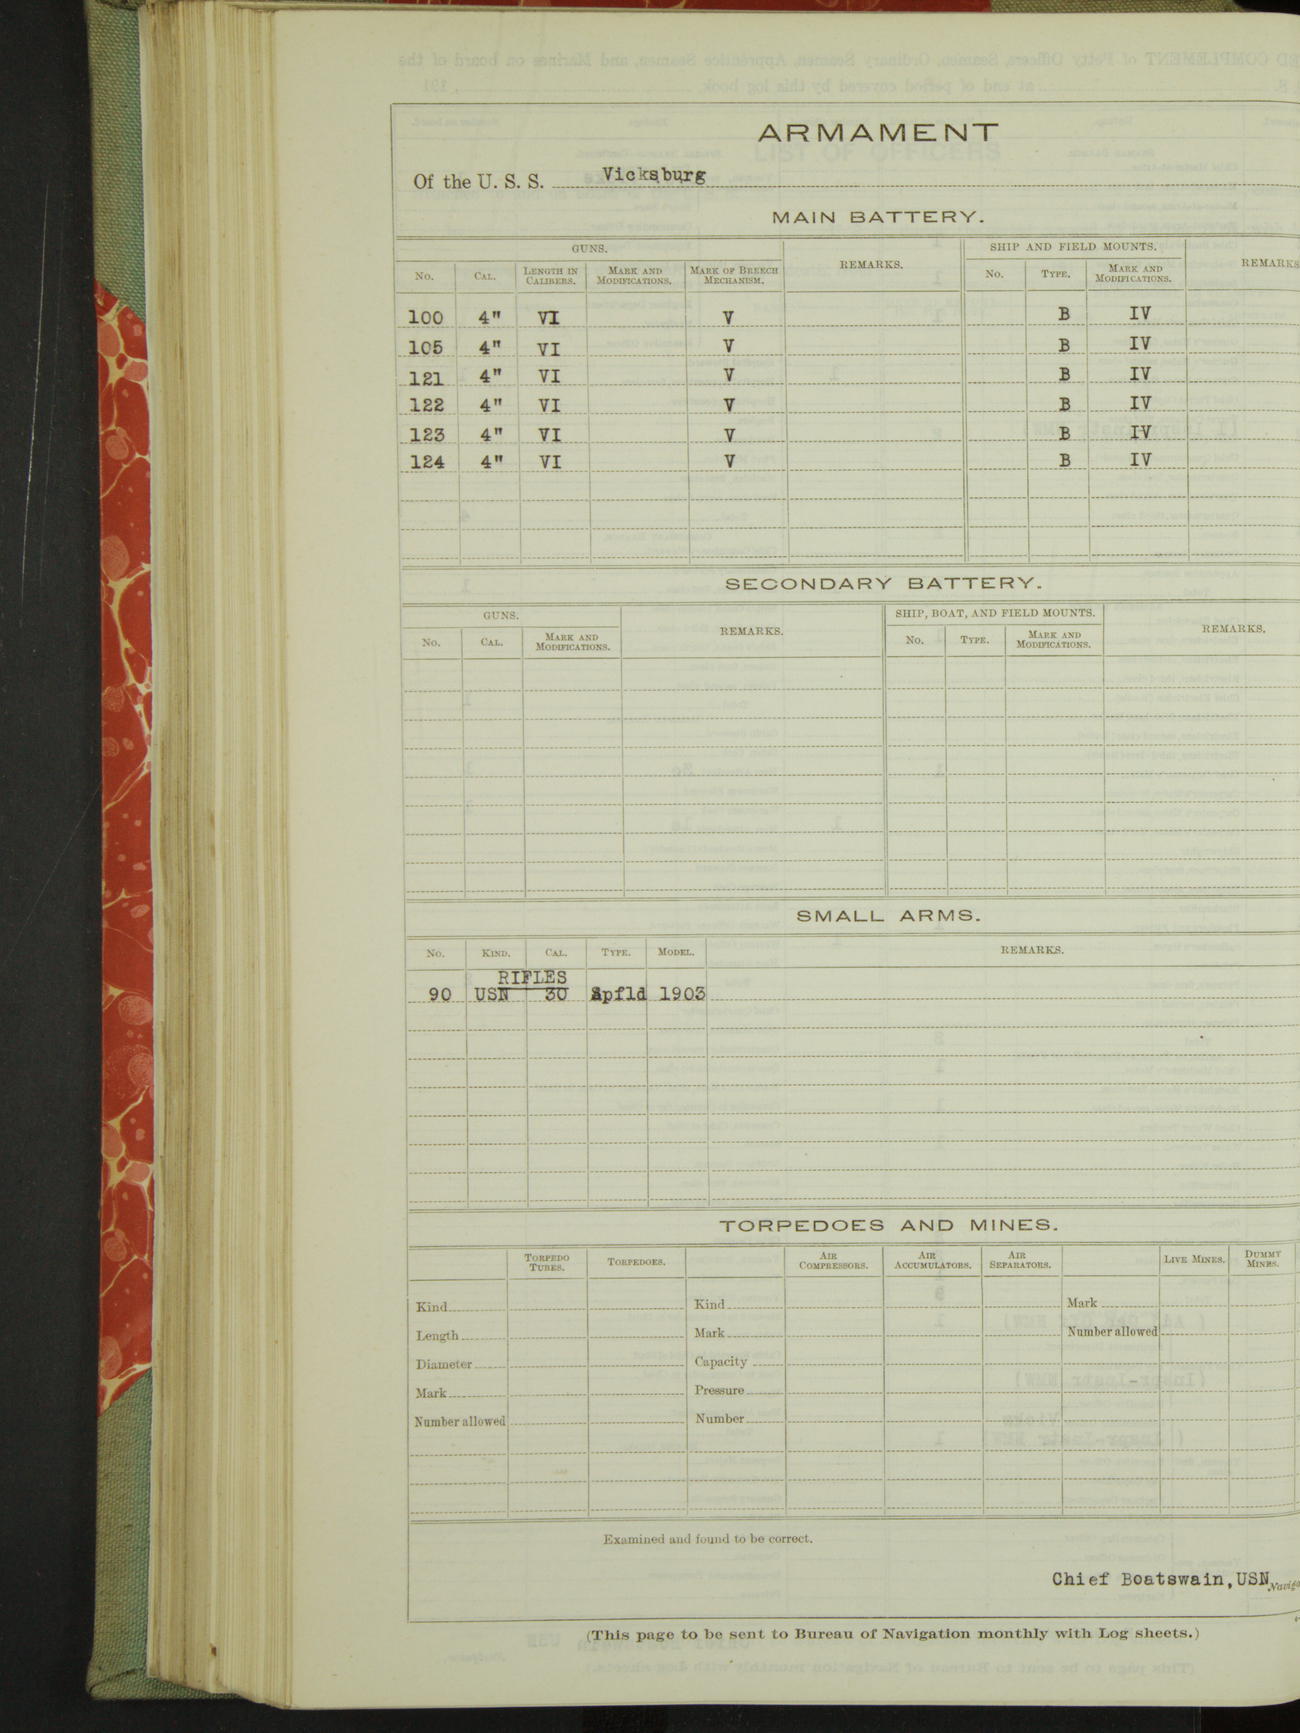 ARMAMENT
Of the U. S. S. Vicksburg
MAIN BATTERY.
GUNS. REMARKS. SHIP AND FIELD MOUNTS. REMARKS
No. CAL. LENGTH IN CALIBERS. MARK AND MODIFICATIONS. MARK OF BREECH MECHANISM. No. TYPE. MARK AND MODIFICATIONS.
100 4" VI V B IV
105 4" VI V B IV
121 4" VI V B IV
122 4" VI V B IV
123 4" VI V B IV
124 4" VI V B IV
SECONDARY BATTERY.
GUNS. REMARKS. SHIP, BOAT, AND FIELD MOUNTS. REMARKS.
No. CAL. MARK AND MODIFICATIONS. No. TYPE. MARK AND MODIFICATIONS.
SMALL ARMS.
No. KIND. CAL. TYPE. MODEL. REMARKS.
RIFLES
90 USN 30 Spfld 1903
TORPEDOES AND MINES.
TORPEDO TUBES. TORPEDOES. AIR COMPRESSORS. AIR ACCUMULATORS. AIR SEPARATORS. LIVE MINES. DUMMY MINES.
Kind Kind Mark
Length Mark Number allowed
Diameter Capacity
Mark Pressure
Number allowed Number
Examined and found to be correct.
Chief Boatswain, USN
(This page to be sent to Bureau of Navigation monthly with Log sheets.)